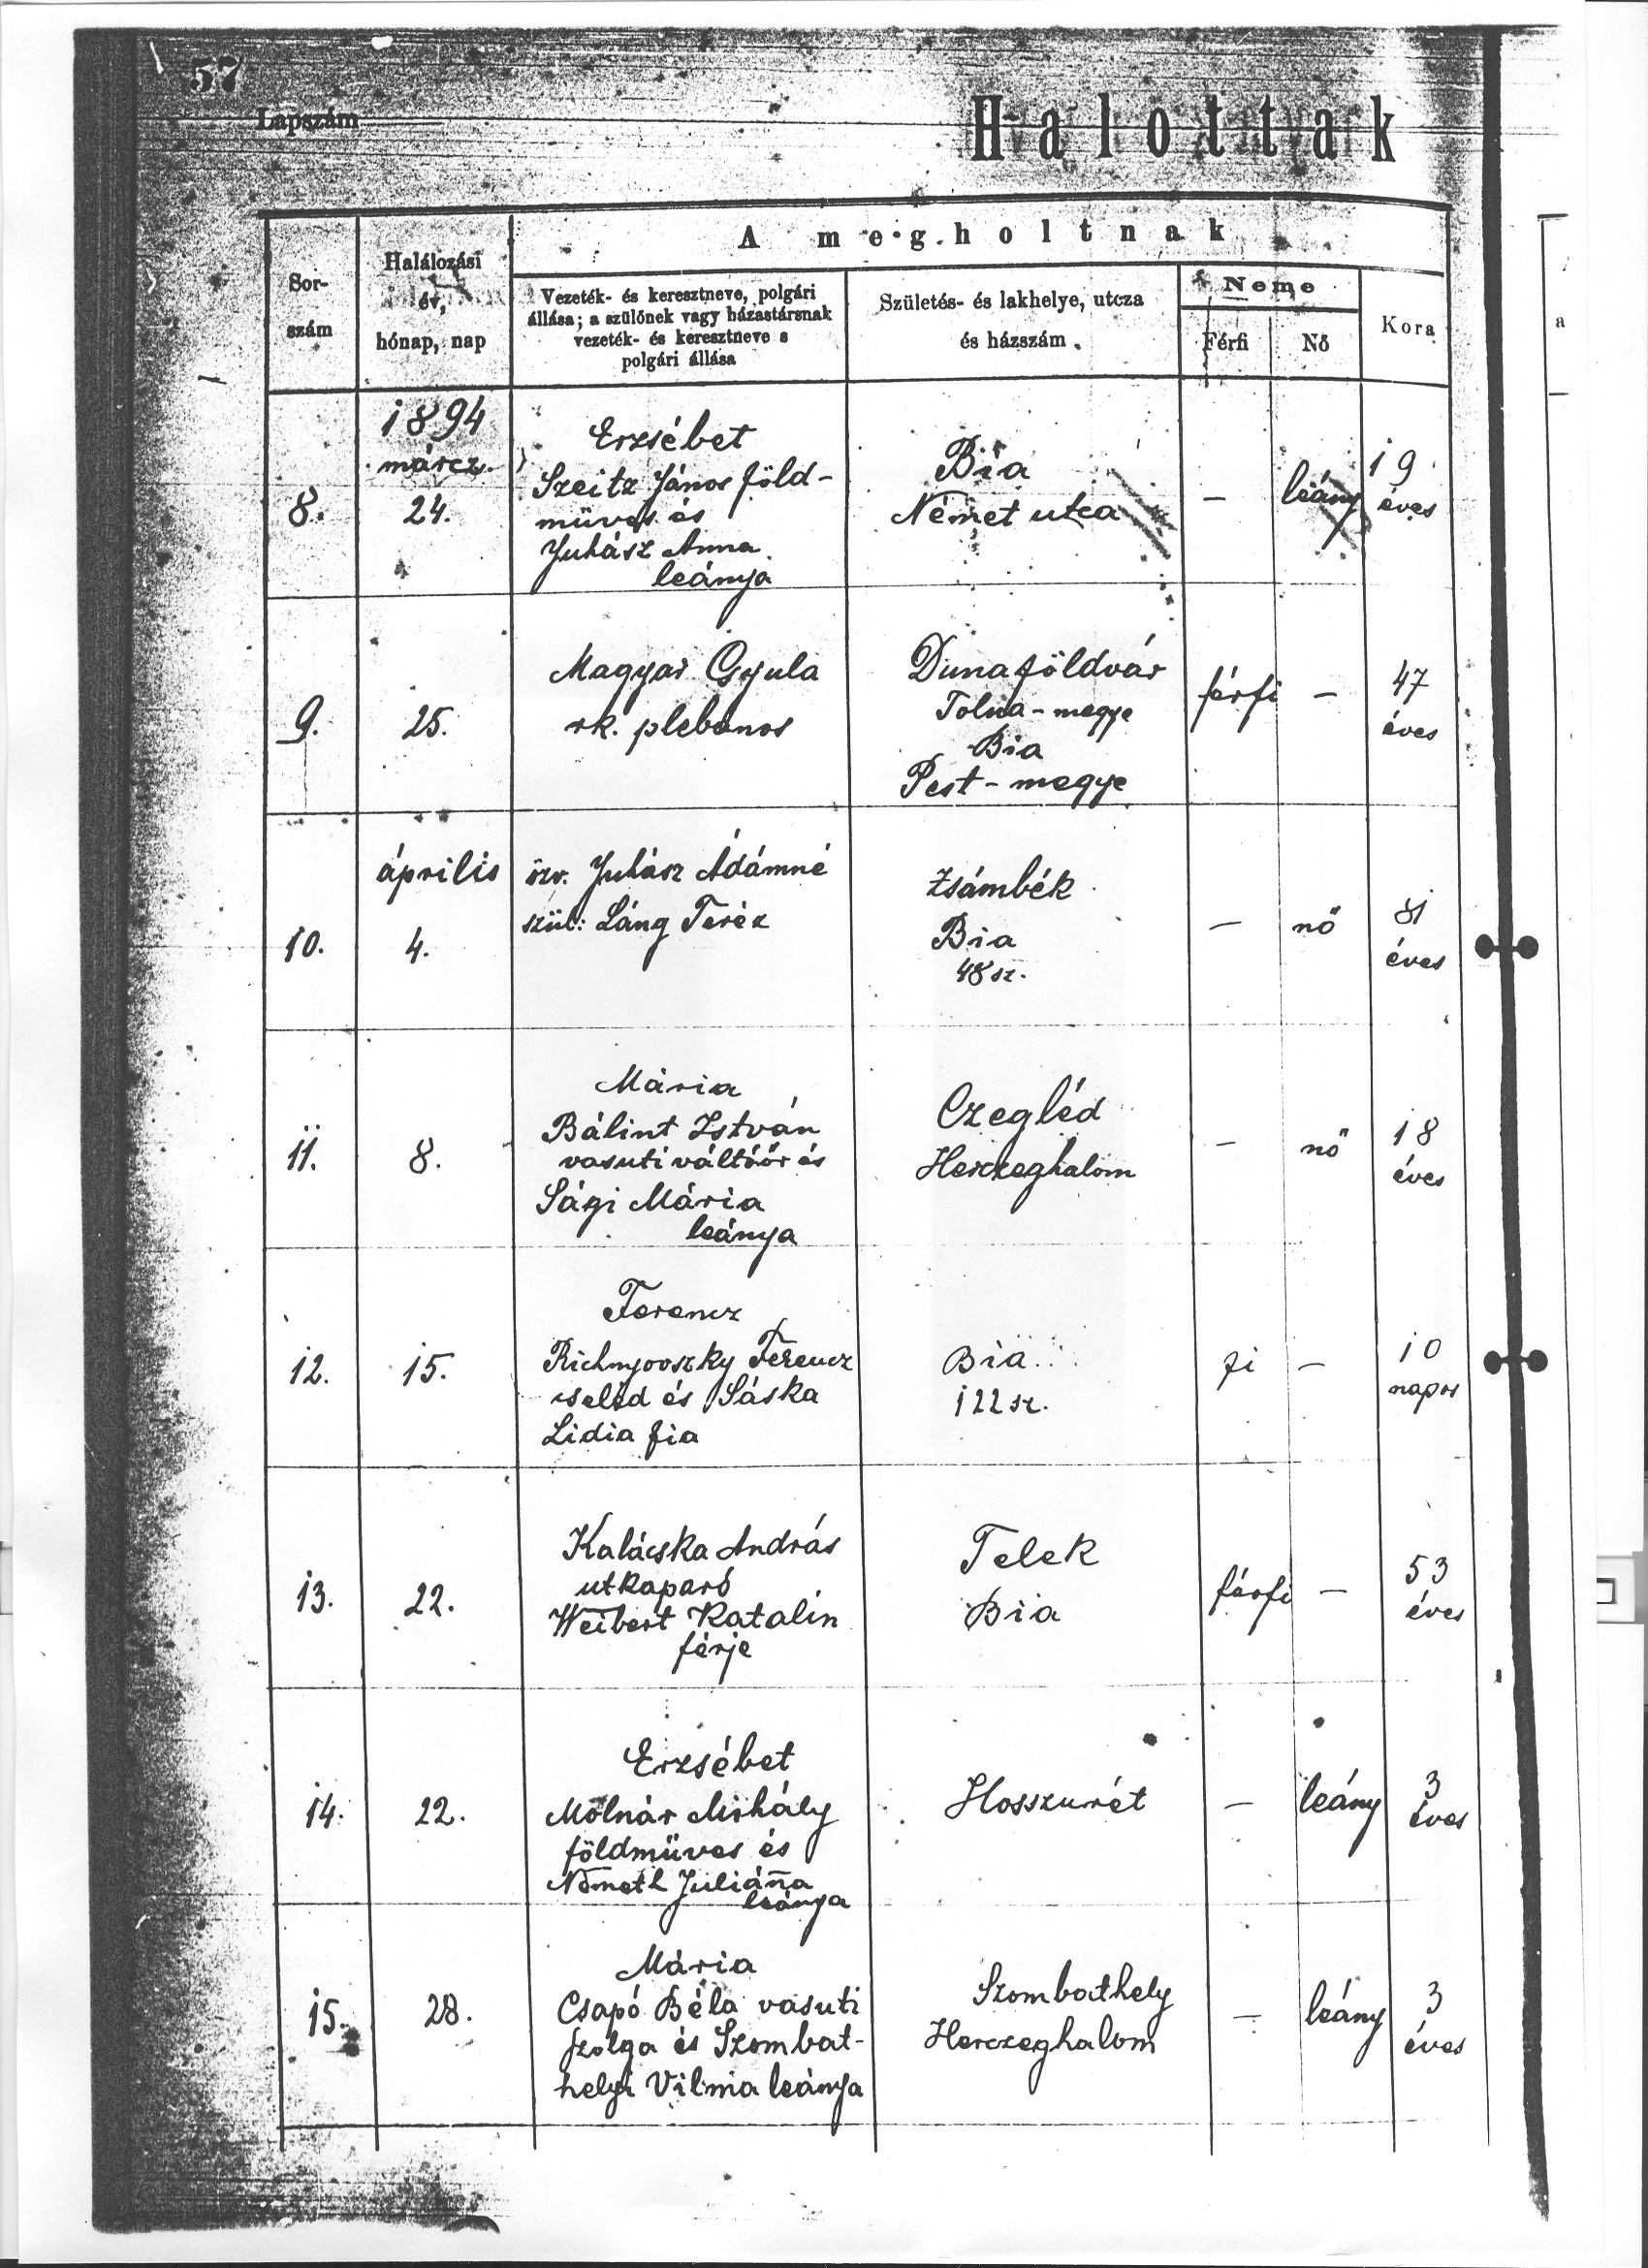 57
Lapszám
Halottak
A megholtnak
Sor-
szám
Halálozási
év,
hónap, nap
Vezeték- és keresztneve, polgári
állása; a szülőnek vagy házastársnak
vezeték- és keresztneve s
polgári állása
Születés- és lakhelye, utcza
és házszám
Neme
Férfi
Nő
Kora
1894
márcz.
8.
24.
Erzsébet
Szeitz János föld-
müves és
Juhász Anna
leánya
Bia
Német utca
–
leány
19
éves
9.
25.
Magyar Gyula
rk. plebános
Dunaföldvár
Tolna-megye
Bia
Pest-megye
férfi
–
47
éves
április
10.
4.
özv. Juhász Ádámné
szül: Láng Teréz
Zsámbék
Bia
48 sz.
–
nő
81
éves
11.
8.
Mária
Bálint István
vasuti váltóőr és
Sági Mária
leánya
Czegléd
Herczeghalom
–
nő
18
éves
12.
15.
Ferencz
Richnyovszky Ferencz
cseléd és Sáska
Lidia fia
Bia
122 sz.
fi
–
10
napos
13.
22.
Kalácska András
utkaparó
Weibert Katalin
férje
Telek
Bia
férfi
–
53
éves
14.
22.
Erzsébet
Molnár Mihály
földmüves és
Németh Juliána
leánya
Hosszurét
–
leány
3
éves
15.
28.
Mária
Csapó Béla vasuti
szolga és Szombat-
helyi Vilma leánya
Szombathely
Herczeghalom
–
leány
3
éves
a